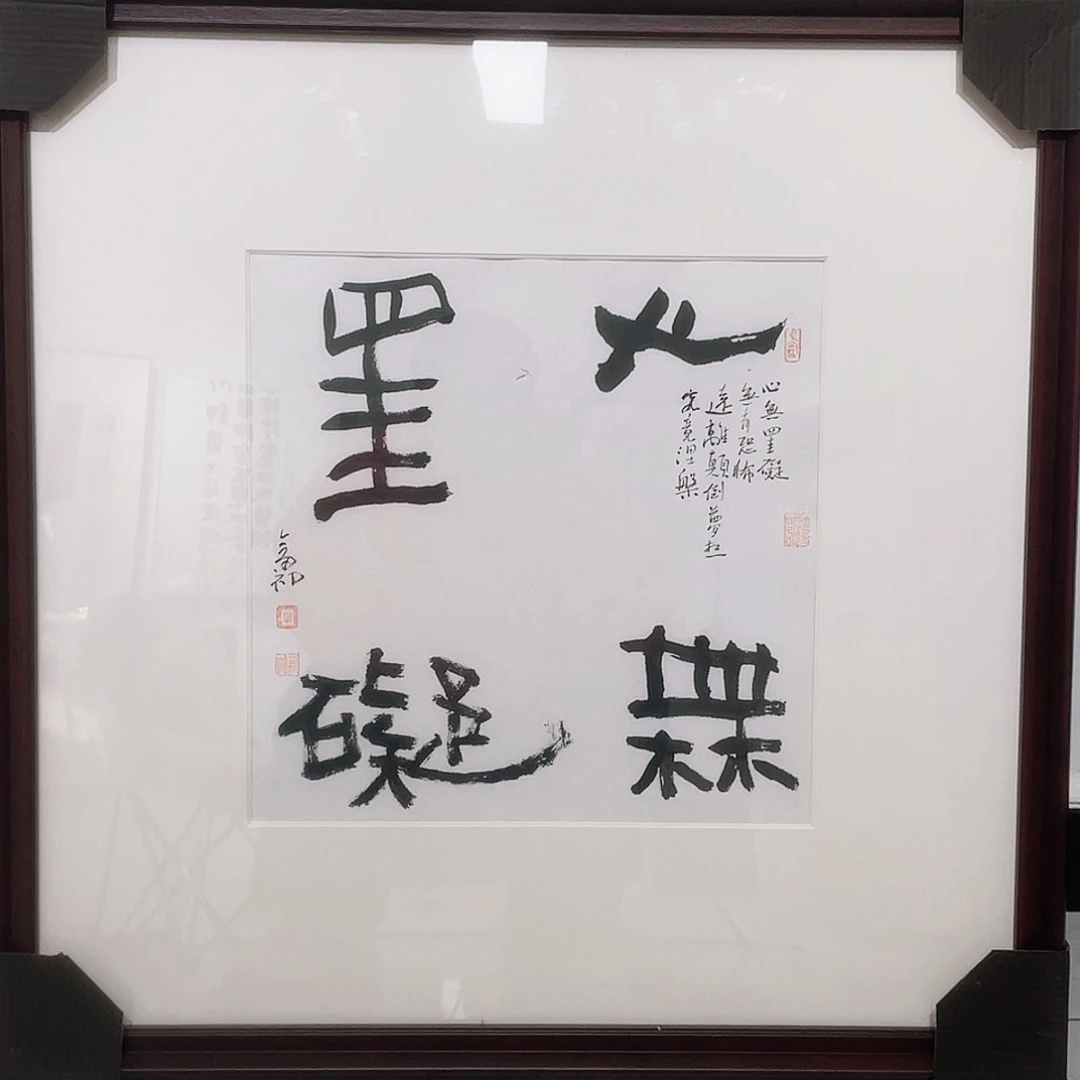 心無
罣礙
心無罣礙
無有恐怖
遠離顛倒夢想
究竟涅槃